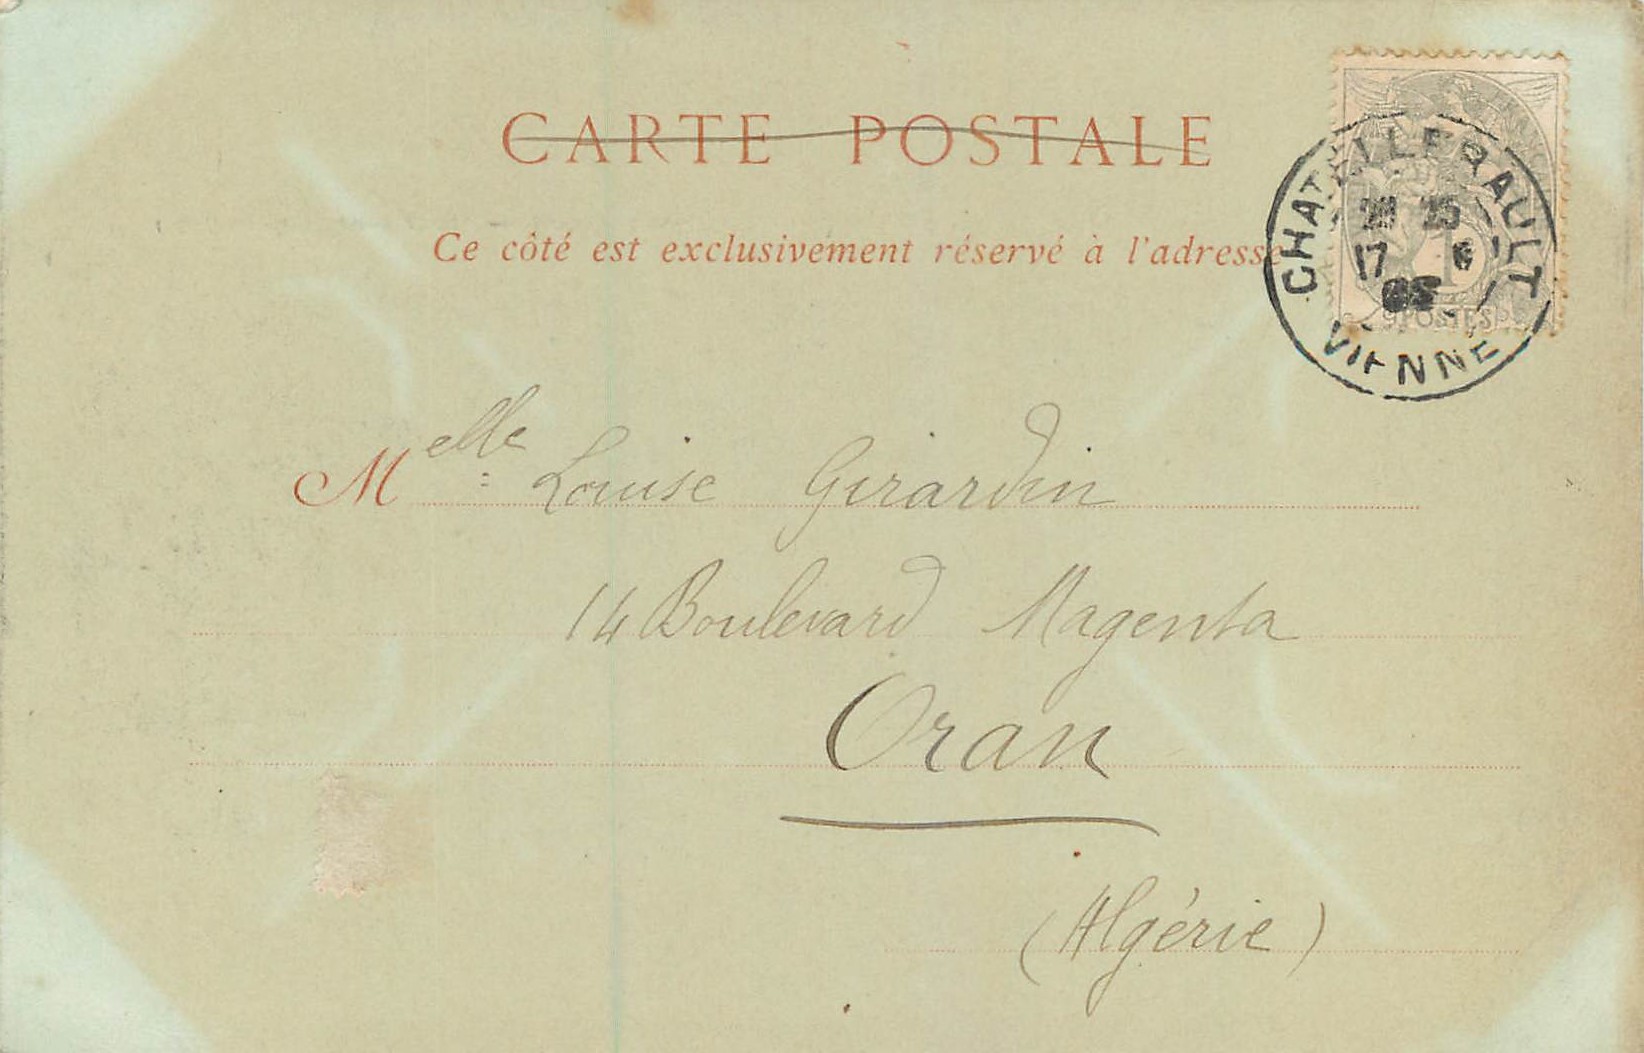 CARTE POSTALE
Ce côté est exclusivement réservé à l'adresse
CHATELLERAULT
17 6
05
VIENNE
1
POSTES
Melle Louise Girardin
14 Boulevard Magenta
Oran
(Algérie)